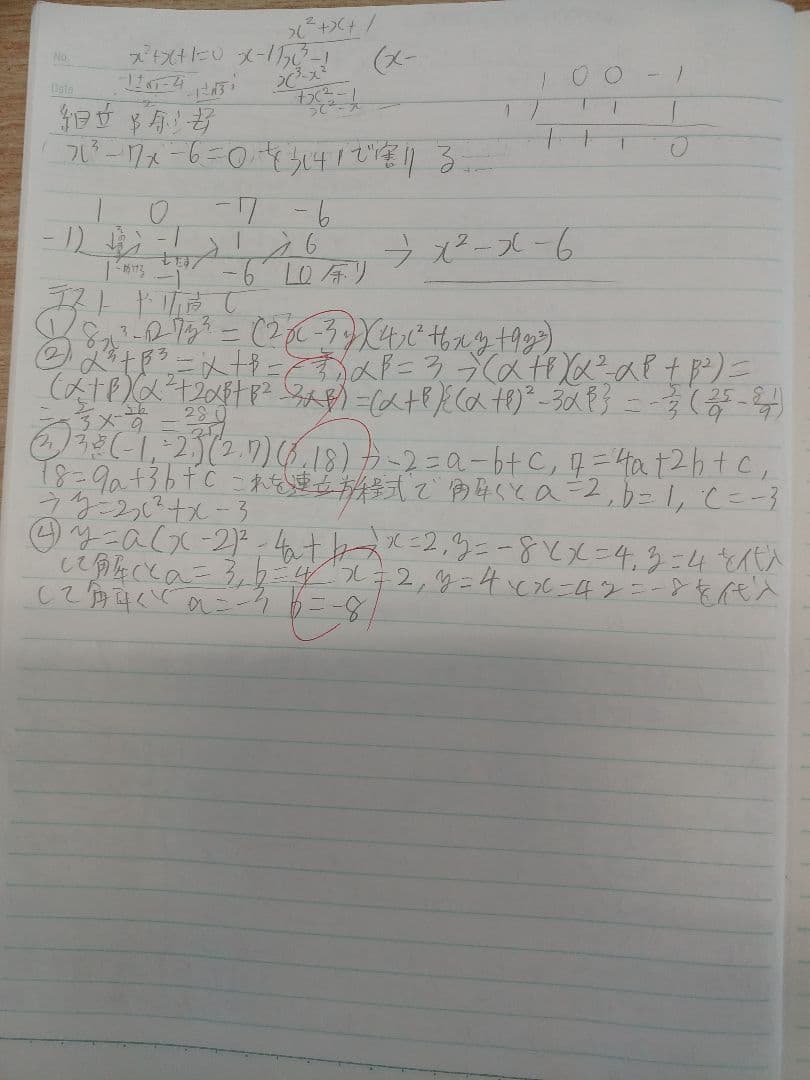 x²+x+1
x²+x+1=0 x-1)x³-1 (x-
No.
-1±√1-4 -1±√3i x³-x² 1 0 0 -1
Date 2 +x²-1 1) 1 1 1
組立 x²-x 1 1 1 0
x³-7x-6=0をx+1で割り る…
1 0 -7 -6
-1) -1 1 6 → x²-x-6
1 -1 -6 0 余り
テスト ドリル直し
① 8x³-27y³=(2x-3y)(4x²+6xy+9y²)
② α³+β³=α+β=-5/3, αβ=3→(α+β)(α²-αβ+β²)=
(α+β)(α²+2αβ+β²-3αβ)=(α+β){(α+β)²-3αβ}=-5/3(25/9-81/9)
=-5/3×-56/9=280/27
③ 3点(-1,-2)(2,7)(3,18)→-2=a-b+c, 7=4a+2b+c,
18=9a+3b+c これを連立方程式で 解くとa=2, b=1, c=-3
→y=2x²+x-3
④ y=a(x-2)²-4a+b→x=2, y=-8とx=4, y=4を代入
して解くとa=3, b=4 x=2, y=4とx=4 y=-8を代入
して解くと a=-3 b=-8